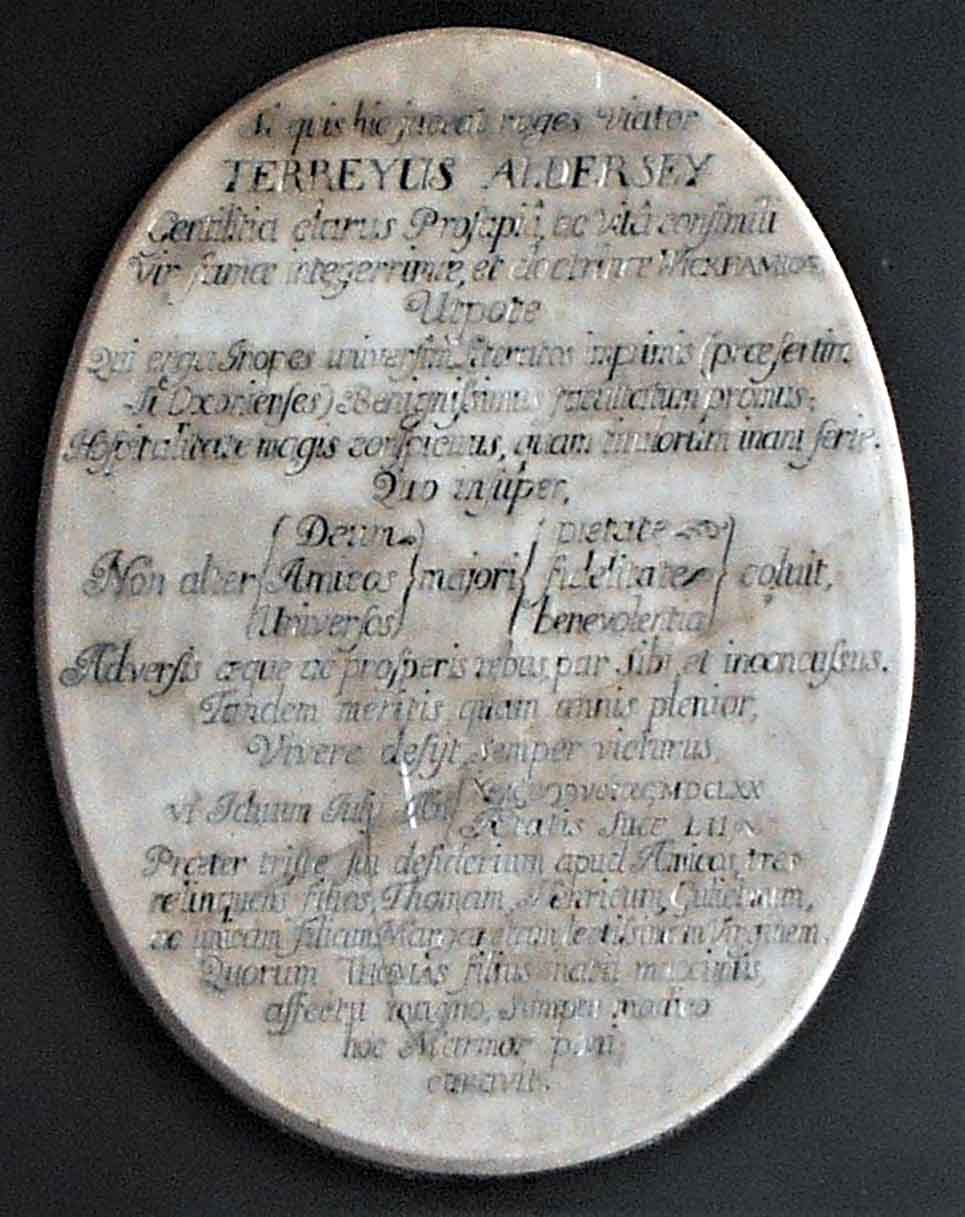 Si quis hic jaceat roges Viator
TERREYUS ALDERSEY
Gentilitia clarus Proſapiâ, ac Vitâ conſimili
Vir famæ integerrimæ, et doctrinæ WICKHAMICÆ,
Utpote
Qui erga Inopes universim, literatos inprimis (præſertim
ſi Oxonienſes) Benigniſsimus facultatum promus;
Hoſpitalitate magis conſpicuus, quam titulorum inani ſerie.
Quo inſuper,
Non alter { Deum Amicos Universos } majori { pietate fidelitate benevolentia } coluit,
Adverſis æque ac proſperis rebus, par sibi, et inconcuſsus.
Tandem meritis, quam annis plenior,
Vivere deſijt, semper victurus,
VI Iduum Julij MDCLXX
Ætatis ſuæ LII
Præter triſte ſui deſiderium apud Amicos, tres
relinquens filios, Thomam, Gulielmum,
ac unicam filiam Margaretam lectiſsimam Virginem.
Quorum THOMAS filius natu maximus,
affectu magno, ſumptu modico
hoc Marmor poni
curavit.